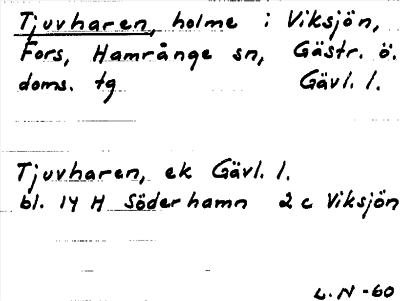 Tjuvharen, holme i Viksjön,
Fors, Hamrånge sn, Gästr. ö.
doms. tg Gävl. l.
Tjuvharen, ek Gävl. l.
bl. 14 H Söderhamn 2 c Viksjön
L.N-60